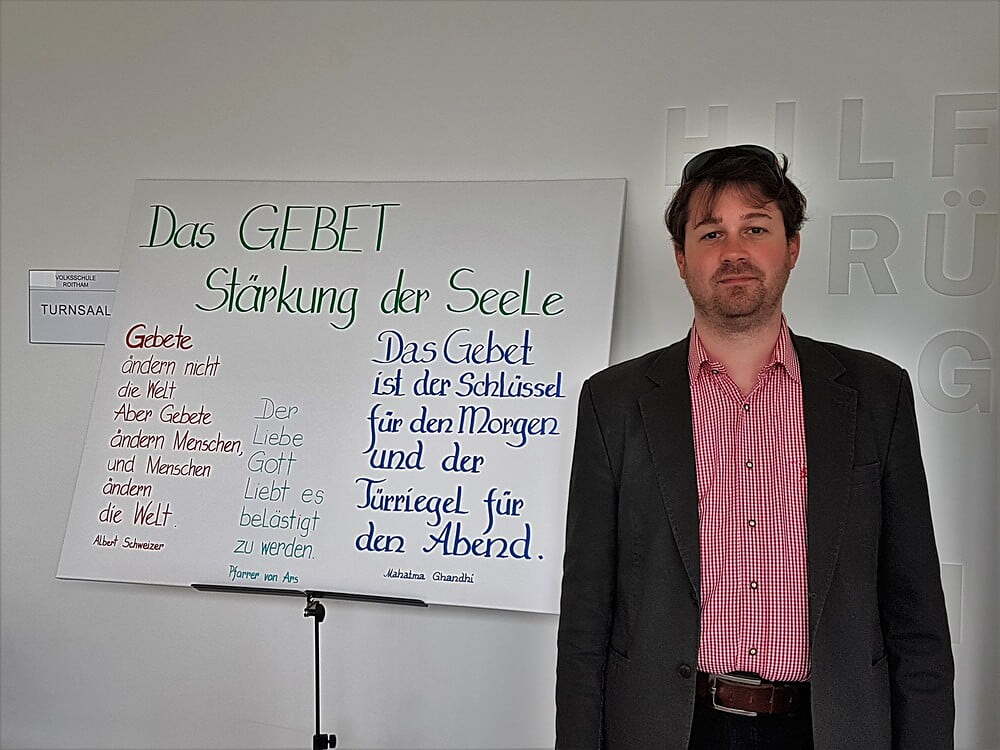 HILF
RÜ
G
VOLKSSCHULE
ROITHAM
TURNSAAL
Das GEBET
Stärkung der Seele
Gebete
ändern nicht
die Welt
Aber Gebete
ändern Menschen,
und Menschen
ändern
die Welt.
Albert Schweizer
Der
Liebe
Gott
Liebt es
belästigt
zu werden.
Pfarrer von Ars
Das Gebet
ist der Schlüssel
für den Morgen
und der
Türriegel für
den Abend.
Mahatma Ghandhi